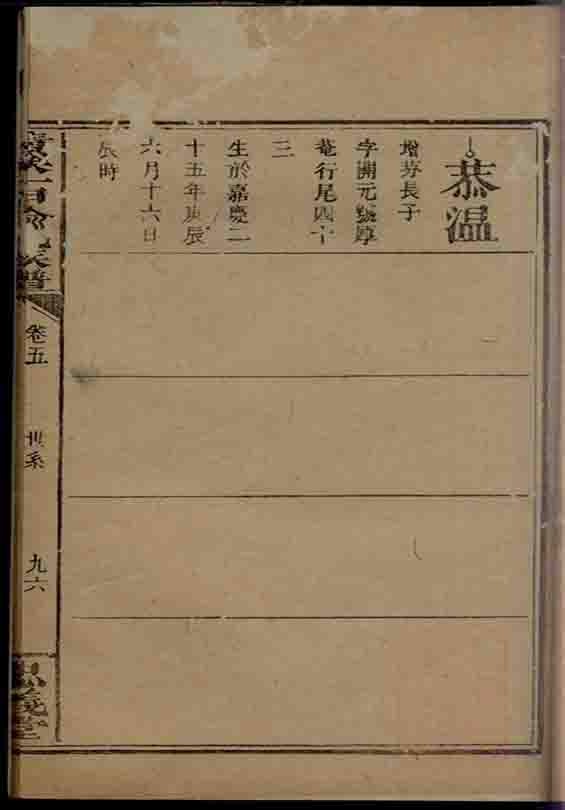 恭温
增芬長子
字開元號厚
菴行尾四十
三
生於嘉慶二
十五年庚辰
六月十六日
辰時
氏族譜
卷五
世系
九六
忠義堂